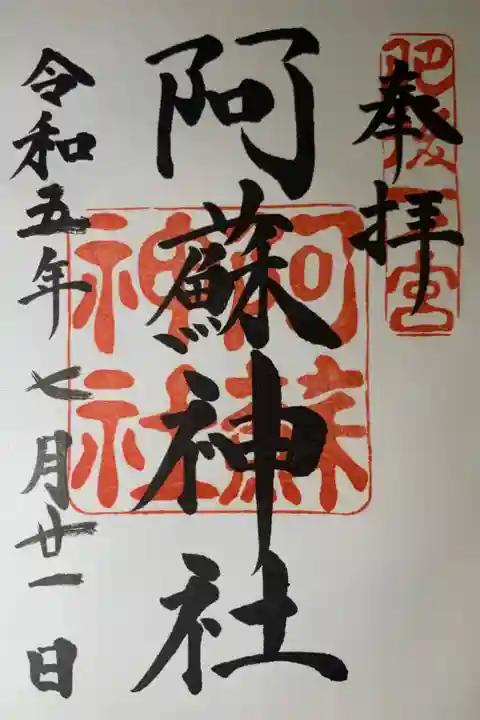 奉拝
肥後一宮
阿蘇神社
阿蘇神社
令和五年七月廿一日